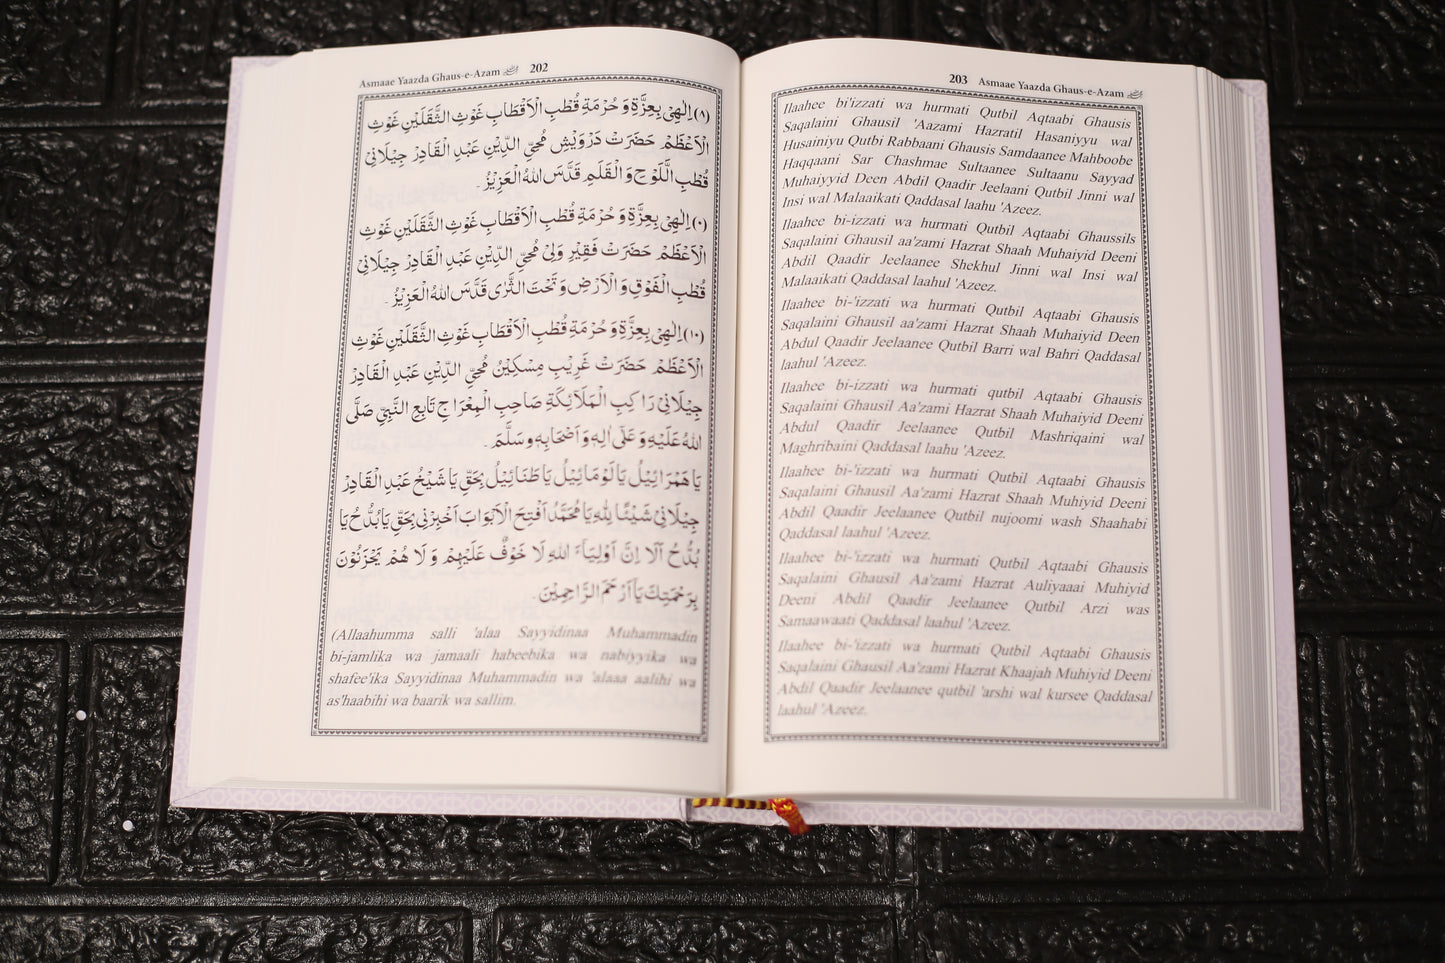 Asmaae Yaazda Ghaus-e-Azam 202
(٨) اِلٰهِیْ بِعِزَّةِ وَ حُرْمَةِ قُطْبِ الْاَقْطَابِ غَوْثِ الثَّقَلَيْنِ غَوْثِ
الْاَعْظَمْ حَضْرَتْ دَرْوِيْشْ مُحِيِّ الدِّيْنِ عَبْدِ الْقَادِرْ جِيْلَانِیْ
قُطْبِ اللَّوْحِ وَ الْقَلَمِ قَدَّسَ اللهُ الْعَزِيْزُ۔
(٠) اِلٰهِیْ بِعِزَّةِ وَ حُرْمَةِ قُطْبِ الْاَقْطَابِ غَوْثِ الثَّقَلَيْنِ غَوْثِ
الْاَعْظَمْ حَضْرَتْ فَقِيْرِ وَلِیْ مُحِيِّ الدِّيْنِ عَبْدِ الْقَادِرْ جِيْلَانِیْ
قُطْبِ الْفَوْقِ وَ الْاَرْضِ وَ تَحْتَ الثَّرٰی قَدَّسَ اللهُ الْعَزِيْزُ۔
(١٠) اِلٰهِیْ بِعِزَّةِ وَ حُرْمَةِ قُطْبِ الْاَقْطَابِ غَوْثِ الثَّقَلَيْنِ غَوْثِ
الْاَعْظَمْ حَضْرَتْ غَرِيْبِ مِسْكِيْنُ مُحِيِّ الدِّيْنِ عَبْدِ الْقَادِرْ
جِيْلَانِیْ رَاكِبِ الْمَلَائِكَةِ صَاحِبِ الْمِعْرَاجِ تَابِعِ النَّبِيِّ صَلَّی
اللهُ عَلَيْهِ وَ عَلٰٓی اٰلِهٖ وَ اَصْحَابِهٖ وَسَلَّمَ۔
يَا هَمْرَائِيْلُ يَا لَوْمَائِيْلُ يَا طَنَائِيْلُ بِحَقِّ يَا شَيْخُ عَبْدِ الْقَادِرْ
جِيْلَانِیْ شَيْئًا لِلّٰهِ يَا مُحَمَّدُ اَفْتِحَ الْاَبْوَابَ اَخْبِرْنِیْ بِحَقِّ يَا بُدُّحُ يَا
بُدُّحُ اَلَا اِنَّ اَوْلِيَآءَ اللهِ لَا خَوْفٌ عَلَيْهِمْ وَ لَا هُمْ يَحْزَنُوْنَ
بِرَحْمَتِكَ يَا اَرْحَمَ الرَّاحِمِيْنَ۔
(Allaahumma salli 'alaa Sayyidinaa Muhammadin
bi-jamlika wa jamaali habeebika wa nabiyyika wa
shafee'ika Sayyidinaa Muhammadin wa 'alaaa aalihi wa
as'haabihi wa baarik wa sallim.
203 Asmaae Yaazda Ghaus-e-Azam
Ilaahee bi'izzati wa hurmati Qutbil Aqtaabi Ghausis
Saqalaini Ghausil 'Aazami Hazratil Hasaniyyu wal
Husainiyu Qutbi Rabbaani Ghausis Samdaanee Mahboobe
Haqqaani Sar Chashmae Sultaanee Sultaanu Sayyad
Muhaiyyid Deen Abdil Qaadir Jeelaani Qutbil Jinni wal
Insi wal Malaaikati Qaddasal laahu 'Azeez.
Ilaahee bi-izzati wa hurmati Qutbil Aqtaabi Ghaussils
Saqalaini Ghausil aa'zami Hazrat Shaah Muhaiyid Deeni
Abdil Qaadir Jeelaanee Shekhul Jinni wal Insi wal
Malaaikati Qaddasal laahul 'Azeez.
Ilaahee bi-'izzati wa hurmati Qutbil Aqtaabi Ghausis
Saqalaini Ghausil aa'zami Hazrat Shaah Muhaiyid Deen
Abdul Qaadir Jeelaanee Qutbil Barri wal Bahri Qaddasal
laahul 'Azeez.
Ilaahee bi-izzati wa hurmati qutbil Aqtaabi Ghausis
Saqalaini Ghausil Aa'zami Hazrat Shaah Muhaiyid Deeni
Abdul Qaadir Jeelaanee Qutbil Mashriqaini wal
Maghribaini Qaddasal laahu 'Azeez.
Ilaahee bi-'izzati wa hurmati Qutbil Aqtaabi Ghausis
Saqalaini Ghausil Aa'zami Hazrat Shaah Muhiyid Deeni
Abdil Qaadir Jeelaanee Qutbil nujoomi wash Shaahabi
Qaddasal laahul 'Azeez.
Ilaahee bi-'izzati wa hurmati Qutbil Aqtaabi Ghausis
Saqalaini Ghausil Aa'zami Hazrat Auliyaaai Muhiyid
Deeni Abdil Qaadir Jeelaanee Qutbil Arzi was
Samaawaati Qaddasal laahul 'Azeez.
Ilaahee bi-'izzati wa hurmati Qutbil Aqtaabi Ghausis
Saqalaini Ghausil Aa'zami Hazrat Khaajah Muhiyid Deeni
Abdil Qaadir Jeelaanee qutbil 'arshi wal kursee Qaddasal
laahul 'Azeez.